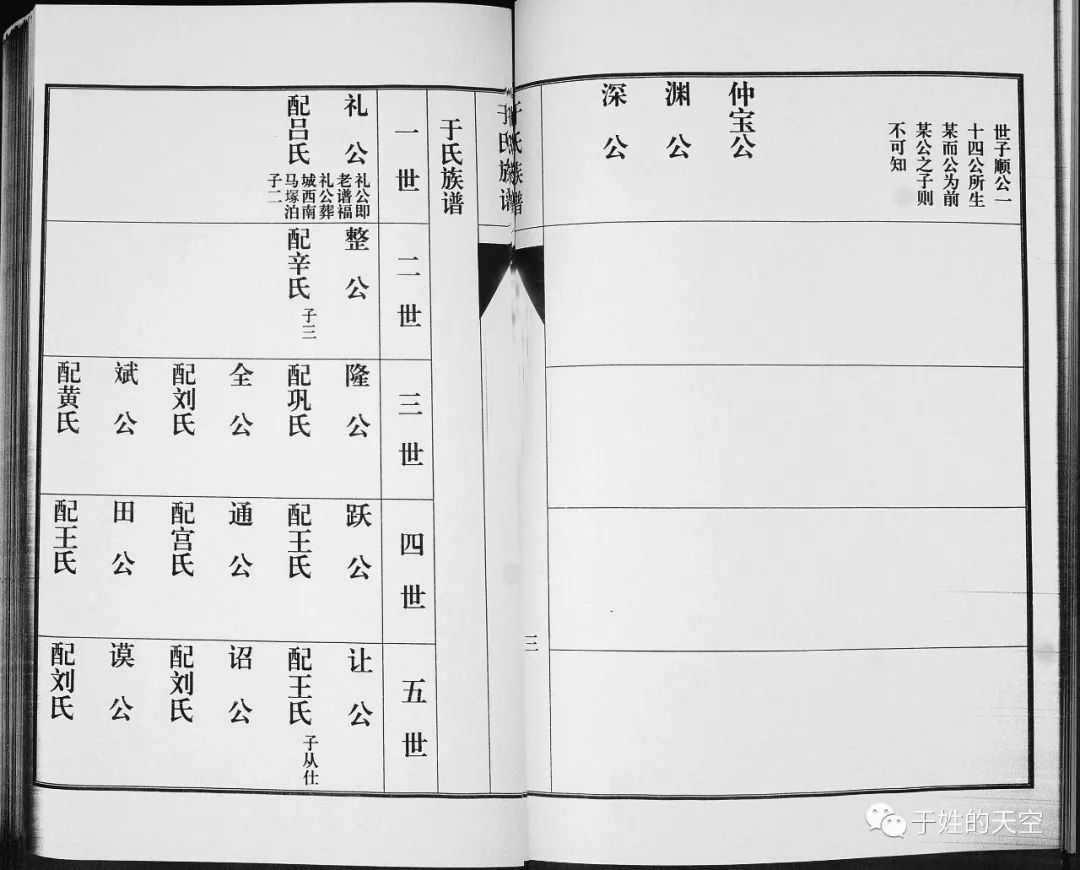 世子顺公一
十四公所生
某而公为前
某公之子则
不可知
仲宝公
渊公
深公
三
于氏族谱
于氏族谱
于氏族谱
一世
礼公
礼公即
老谱福
礼公葬
城西南
马塚泊
子二
配吕氏
二世
整公
配辛氏
子三
三世
隆公
配巩氏
全公
配刘氏
斌公
配黄氏
四世
跃公
配王氏
通公
配宫氏
田公
配王氏
五世
让公
配王氏
子从仕
诏公
配刘氏
谟公
配刘氏
于姓的天空